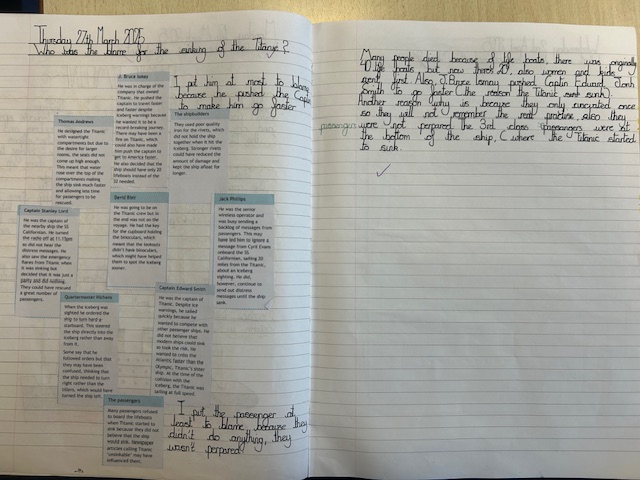 Thursday 27th March 2025
Who was the blame for the sinking of the Titanic?
J. Bruce Ismay
He was in charge of the
company that owned
Titanic. He pushed the captain
to travel faster
and faster despite
iceberg warnings because
he wanted it to be a
record-breaking journey.
There may have been a
fire on Titanic, which
could also have made
him push the captain to
get to America faster.
He also decided that the
ship should have only 20
lifeboats instead of the
32 needed.
I put him at most to blame
because he pushed the Captain
to make him go faster
Thomas Andrews
He designed the Titanic
with watertight
compartments but due to
the desire for larger
rooms, the walls did not
come up high enough.
This meant that water
rose over the top of the
compartments making
the ship sink much faster
and allowing less time
for passengers to be
rescued.
The shipbuilders
They used poor quality
iron for the rivets, which
did not hold the ship
together when it hit the
iceberg. Stronger rivets
could have reduced the
amount of damage and
kept the ship afloat for
longer.
David Blair
He was going to be on
the Titanic crew but in
the end was not on the
voyage. He had the key
for the cupboard holding
the binoculars, which
meant that the lookouts
didn't have binoculars,
which might have helped
them to spot the iceberg
sooner.
Jack Phillips
He was the senior
wireless operator and
was busy sending a
backlog of messages from
passengers. This may
have led him to ignore a
message from Cyril Evans
onboard the SS
Californian, sailing 20
miles from the Titanic,
about an iceberg
sighting. He did,
however, continue to
send out distress
messages until the ship
sank.
Captain Stanley Lord
He was the captain of
the nearby ship the SS
Californian. He turned
the radio off at 11.15pm
so did not hear the
distress messages. He
also saw the emergency
flares from Titanic when
it was sinking but
decided that it was just a
party and did nothing.
They could have rescued
a great number of
passengers.
Quartermaster Hichens
When the iceberg was
sighted he ordered the
ship to turn hard a
starboard. This steered
the ship directly into the
iceberg rather than away
from it.
Some say that he
followed orders but that
they may have been
confused, thinking that
the ship needed to turn
right rather than the
tillers, which would have
turned the ship left.
Captain Edward Smith
He was the captain of
Titanic. Despite ice
warnings, he sailed
quickly because he
wanted to compete with
other passenger ships. He
did not believe that
modern ships could sink
so took the risk. He
wanted to cross the
Atlantic faster than the
Olympic, Titanic's sister
ship. At the time of the
collision with the
iceberg, the Titanic was
sailing at full speed.
The passengers
Many passengers refused
to board the lifeboats
when Titanic started to
sink because they did not
believe that the ship
would sink. Newspaper
articles calling Titanic
'unsinkable' may have
influenced them.
I put the passenger at
least to blame, because they
didn't do anything, they
wasn't perpared
Many people died because of life boats, there was originally
40 life boats, but now theres 20, also women and kids
went first. Also, J.Bruce Ismay pushed Captain Edward John
Smith to go faster (the reason the titanic sunk).
Another reason why is because they only
so they will not remember the real practise, also they
passengers were not perpared, the 3rd class passengers were sat
the bottom of the ship, (where the Titanic started
to sink.